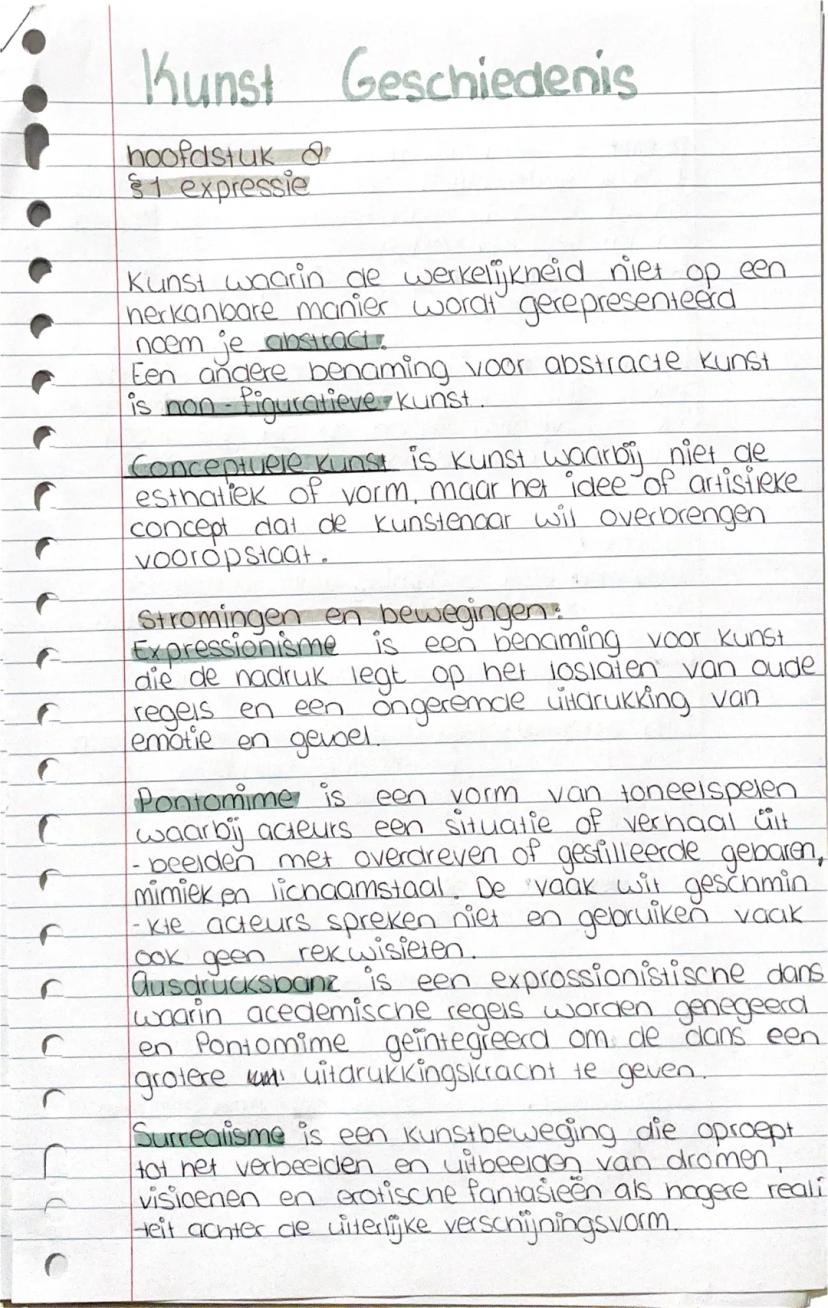 Kunst Geschiedenis
hoofdstuk 8
§1 expressie
Kunst waarin de werkelijkheid niet op een
herkanbare manier wordt gerepresenteerd
noem je abstract.
Een andere benaming voor abstracte kunst
is non-figuratieve kunst.
Conceptuele kunst is kunst waarbij niet de
esthatiek of vorm, maar het idee of artistieke
concept dat de kunstenaar wil overbrengen
vooropstaat.
Stromingen en bewegingen:
Expressionisme is een benaming voor kunst
die de nadruk legt op het loslaten van oude
regels en een ongeremde uitdrukking van
emotie en gevoel.
Pontomime is een vorm van toneelspelen
waarbij acteurs een situatie of verhaal uit
-beelden met overdreven of gestilleerde gebaren,
mimiek en lichaamstaal. De vaak wit geschmin
-kte acteurs spreken niet en gebruiken vaak
ook geen rekwisieten.
Ausdrucksbanz is een exprossionistische dans
waarin acedemische regels worden genegeerd
en Pontomime geïntegreerd om de dans een
grotere uitdrukkingskracht te geven.
Surrealisme is een kunstbeweging die oproept
tot het verbeelden en uitbeelden van dromen,
visioenen en erotische fantasieën als hogere reali
-teit achter de uiterlijke verschijningsvorm.